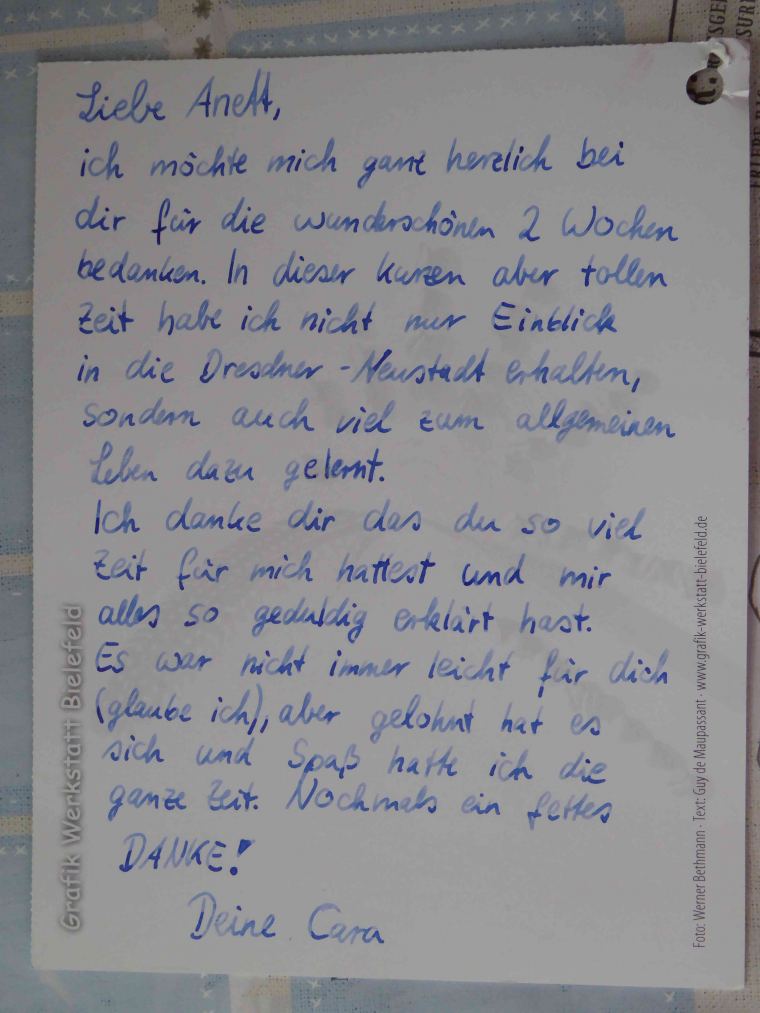 Liebe Anett,
ich möchte mich ganz herzlich bei
dir für die wunderschönen 2 Wochen
bedanken. In dieser kurzen aber tollen
Zeit habe ich nicht nur Einblick
in die Dresdner-Neustadt erhalten,
sondern auch viel zum allgemeinen
Leben dazu gelernt.
Ich danke dir das du so viel
Zeit für mich hattest und mir
alles so geduldig erklärt hast.
Es war nicht immer leicht für dich
(glaube ich), aber gelohnt hat es
sich und Spaß hatte ich die
ganze Zeit. Nochmals ein fettes
DANKE!
Deine Cara
Grafik Werkstatt Bielefeld
Foto: Werner Bethmann · Text: Guy de Maupassant · www.grafik-werkstatt-bielefeld.de